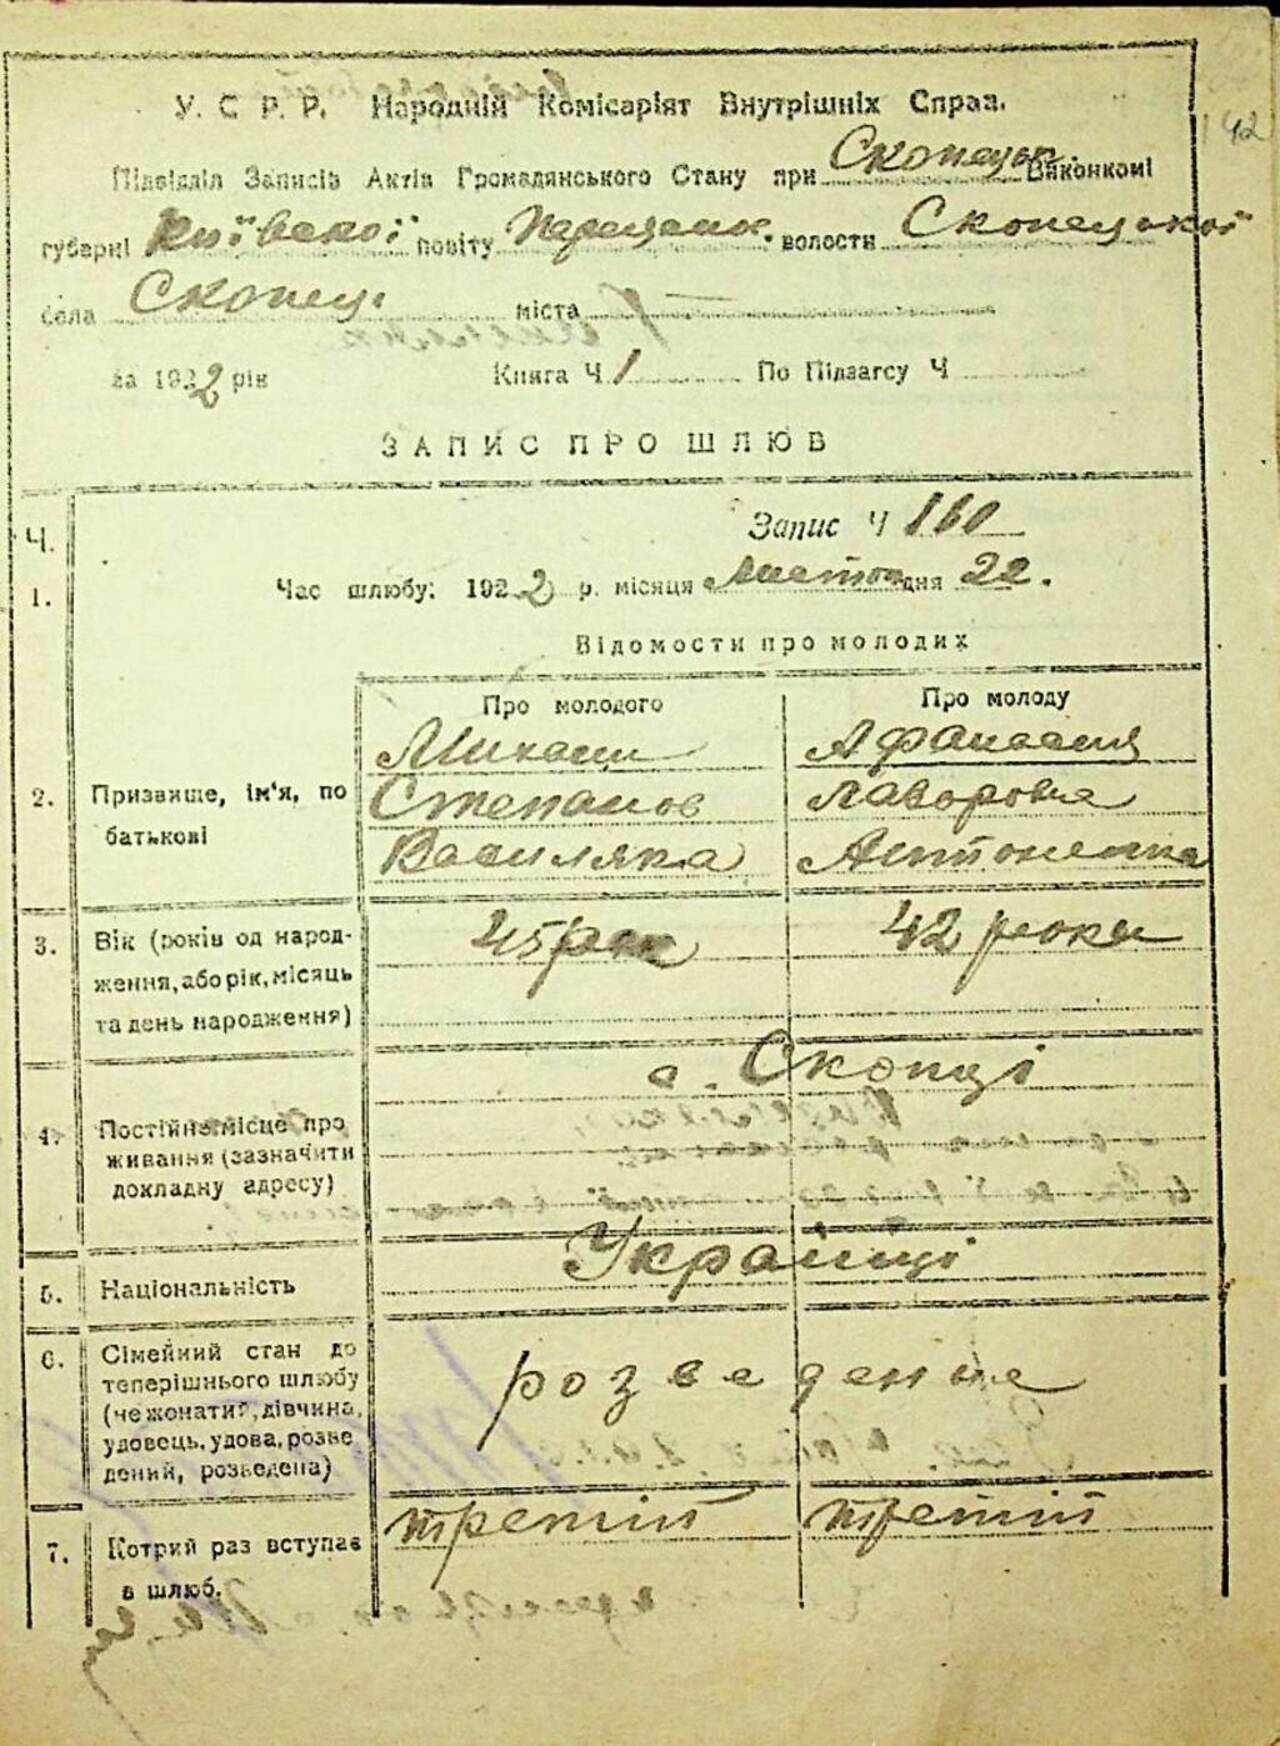 У. С Р. Р. Народній Комісаріят Внутрішніх Справ.
142
Підвідділ Записів Актів Громадянського Стану при Скопецьк. Виконкомі
губерні Київскої повіту Переяслі. волости Скопецької
села Скопец. міста
за 1922 рік Книга Ч 1 По Підзагсу Ч
ЗАПИС ПРО ШЛЮБ
Ч. Запис Ч 160
1. Час шлюбу: 1922 р. місяця Листоп дня 22.
Відомости про молодих
Про молодого Про молоду
Афанасия
2. Призвище, ім'я, по Степанов Лаворовна
батькові Василяка Антоненка
3. Вік (років од народ- 45 рок 42 роки
ження, або рік, місяць
та день народження)
с. Скопці
4. Постійне місце про
живання (зазначити
докладну адресу)
Українці
5. Національність
6. Сімейний стан до
теперішнього шлюбу розведенные
(нежонатий, дівчина,
удовець, удова, розве
дений, розведена)
третій третій
7. Котрий раз вступає
в шлюб.